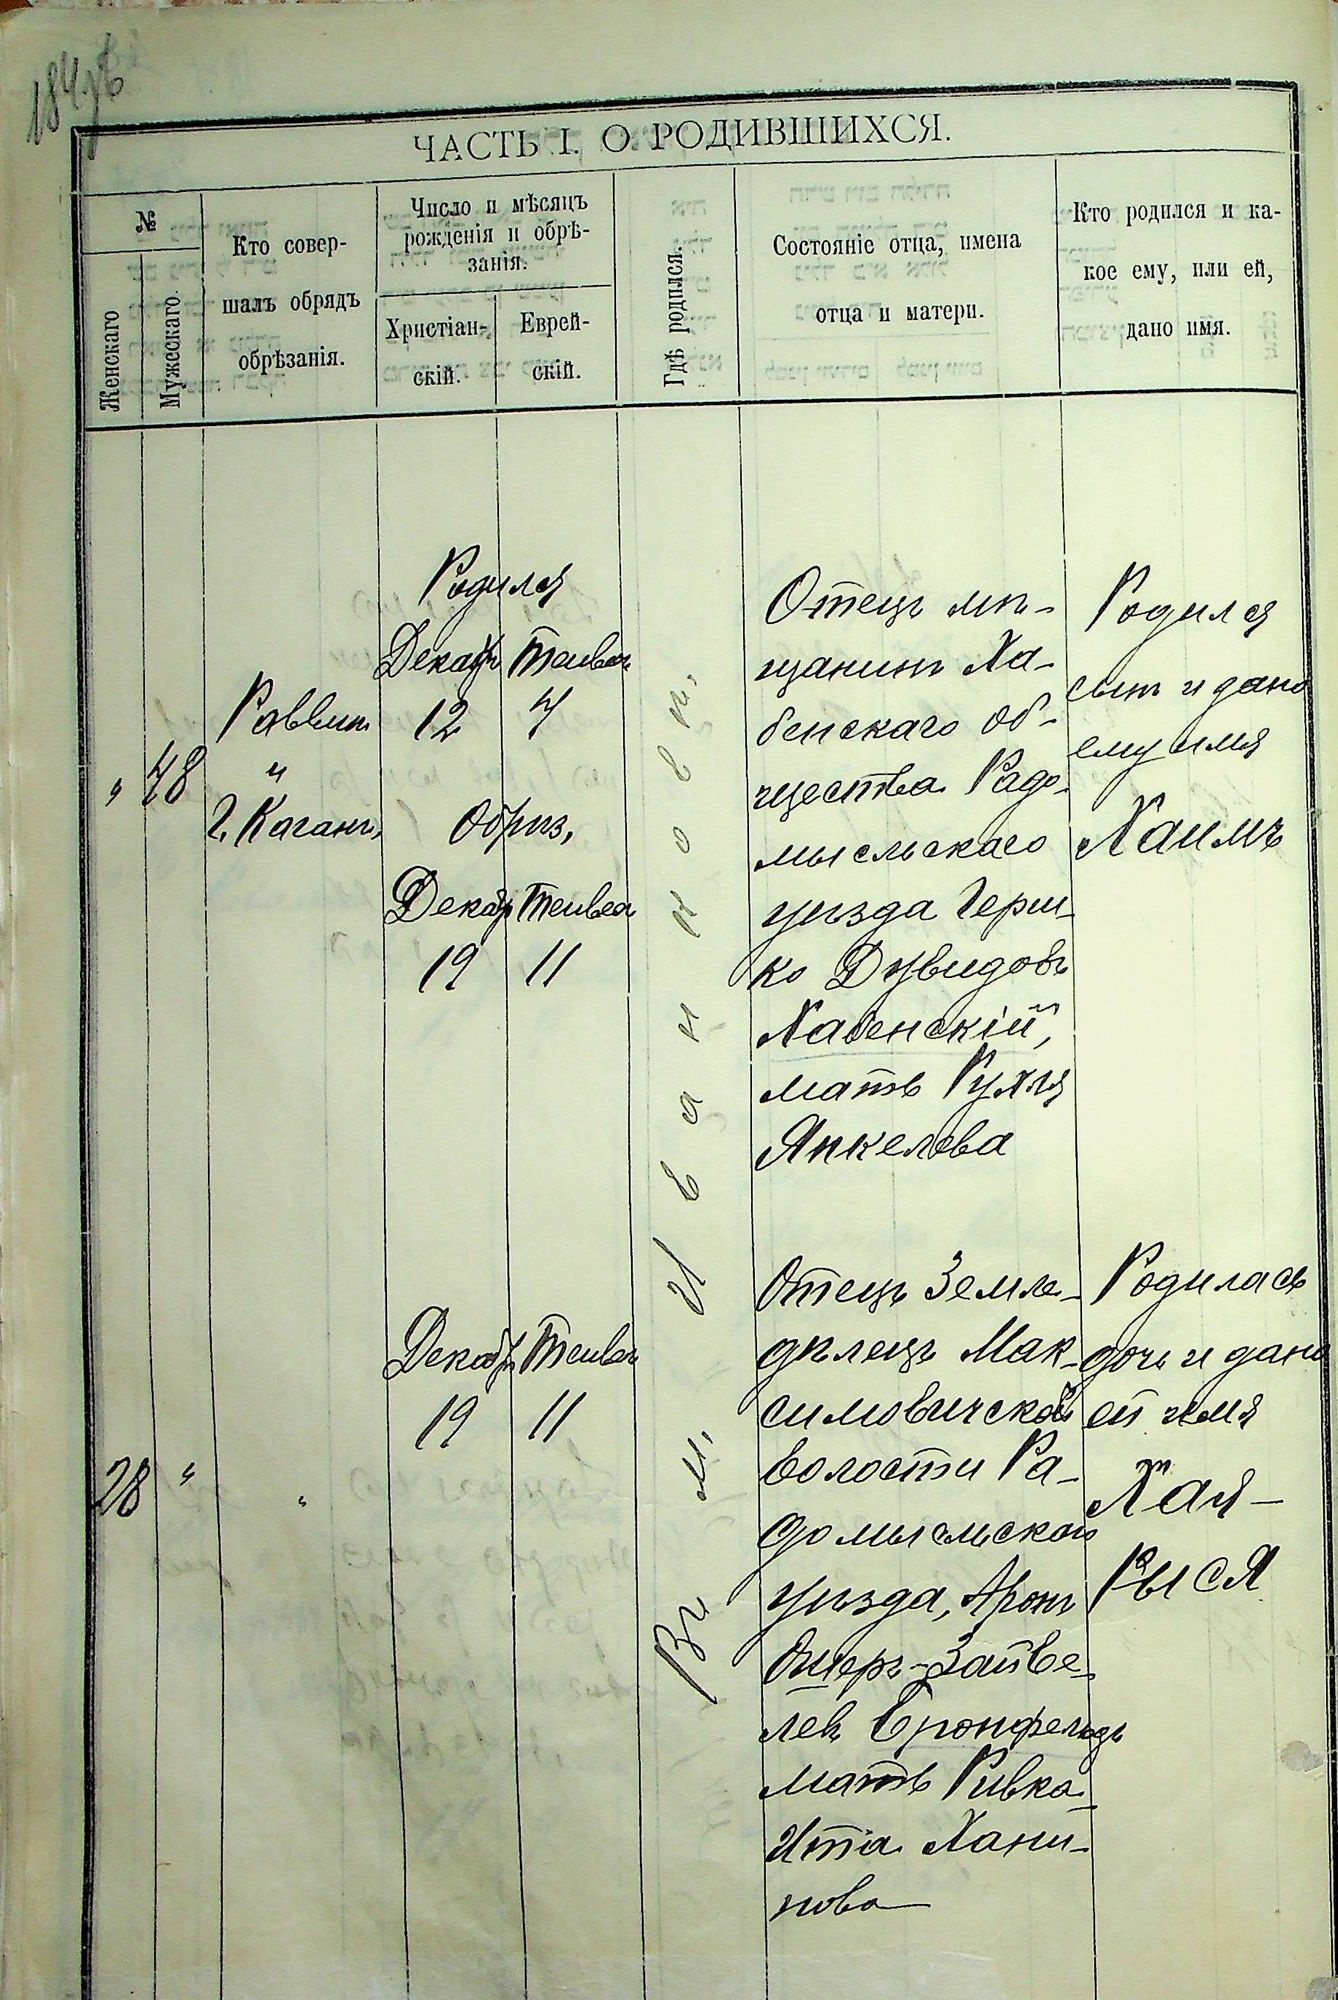 184об
ЧАСТЬ I. О РОДИВШИХСЯ.
№
Женскаго
Мужескаго.
Кто совер-
шалъ обрядъ
обрѣзанія.
Число и мѣсяцъ
рожденія и обрѣ-
занія.
Христіан-
скій.
Еврей-
скій.
Гдѣ родился.
Состояніе отца, имена
отца и матери.
Кто родился и ка-
кое ему, или ей,
дано имя.
" 48
Раввин
"
Г. Каганъ,
Родился
Декабр Тейвеа
12 4
Обрѣз,
Декабр Тейвеа
19 11
Въ м. Ивановѣ,
Отецъ мѣ-
щанинъ Ха-
бенскаго об-
щества Радо-
мысльскаго
уѣзда Герш-
ко Дувидовъ
Хабенскій,
мать Рухля
Янкелева
Родился
сынъ и дано
ему имя
Хаимъ
28 "
"
Декабр Тейвеа
19 11
Отецъ Земле-
дѣлецъ Мак-
симовичской
волости Ра-
домысльскаго
уѣзда, Аронъ
Ошеръ-Зайве-
левъ Бронфельдъ
мать Ривка-
Ита Хани-
нова
Родилась
дочь и дано
ей имя
Хая-
Рыся